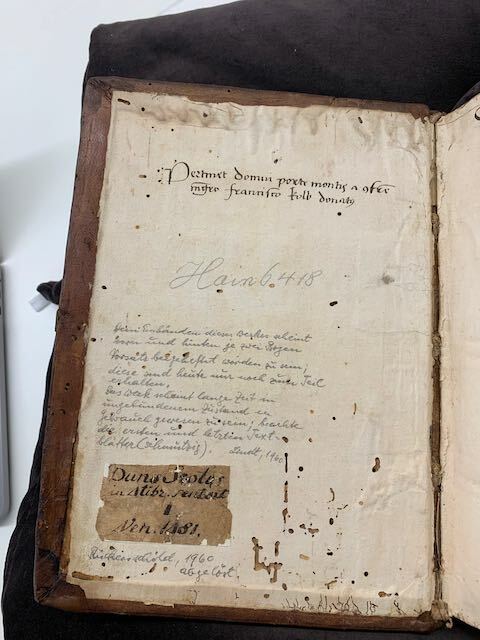 Pertinet domui porte montis a confratre
mgro francisco kolb donatus
Hain 6418
Beim Einbinden dieses Werkes scheint
vorn und hinten je zwei Bogen
Vorsatz beigeheftet worden zu sein;
diese sind heute nur noch zum Teil
erhalten.
Das Werk scheint lange Zeit in
ungebundenem Zustand in
Gebrauch gewesen zu sein, beachte
die ersten und letzten Text-
blätter (schmutzig). 1960
Duns Scotus
in IV libr. Sentent
Ven. 1481.
Rückenschild, 1960
abgelöst.